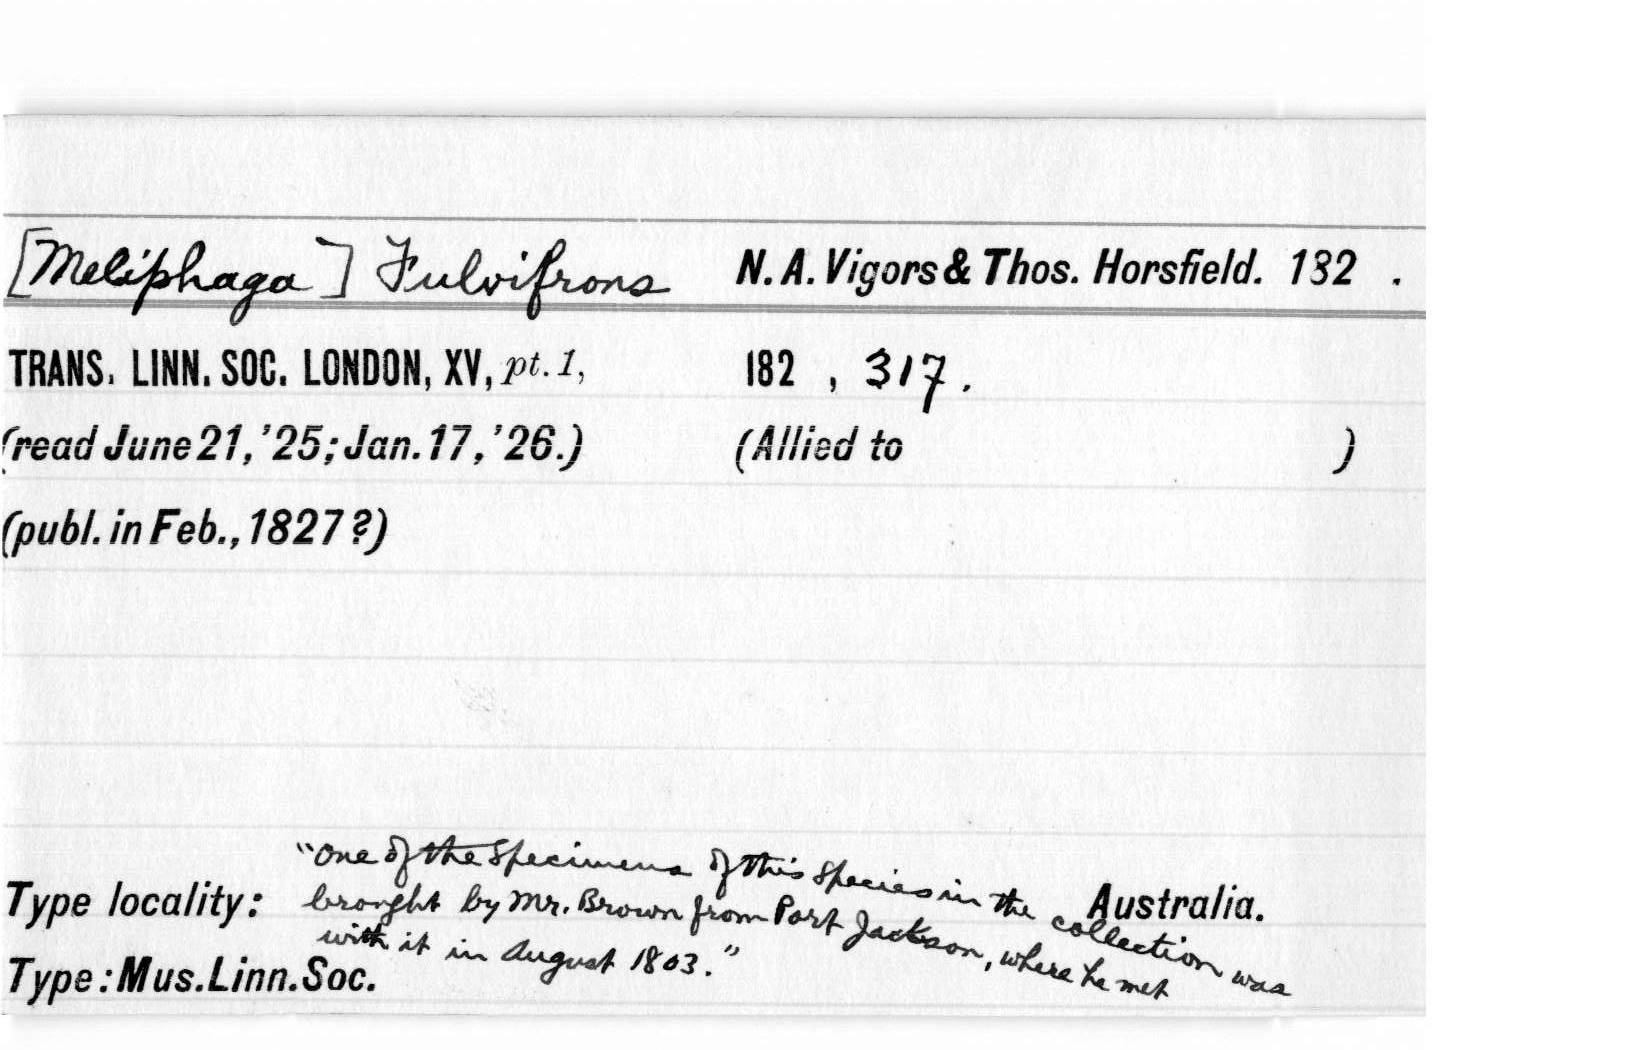 [Meliphaga] Fulvifrons N. A. Vigors & Thos. Horsfield. 182 .
TRANS. LINN. SOC. LONDON, XV, pt. 1, 182 , 317.
(read June 21, '25; Jan. 17, '26.) (Allied to )
(publ. in Feb., 1827 ?)
"One of the specimens of this species in the collection was
Type locality: brought by Mr. Brown from Port Jackson, where he met Australia.
with it in August 1803."
Type: Mus. Linn. Soc.